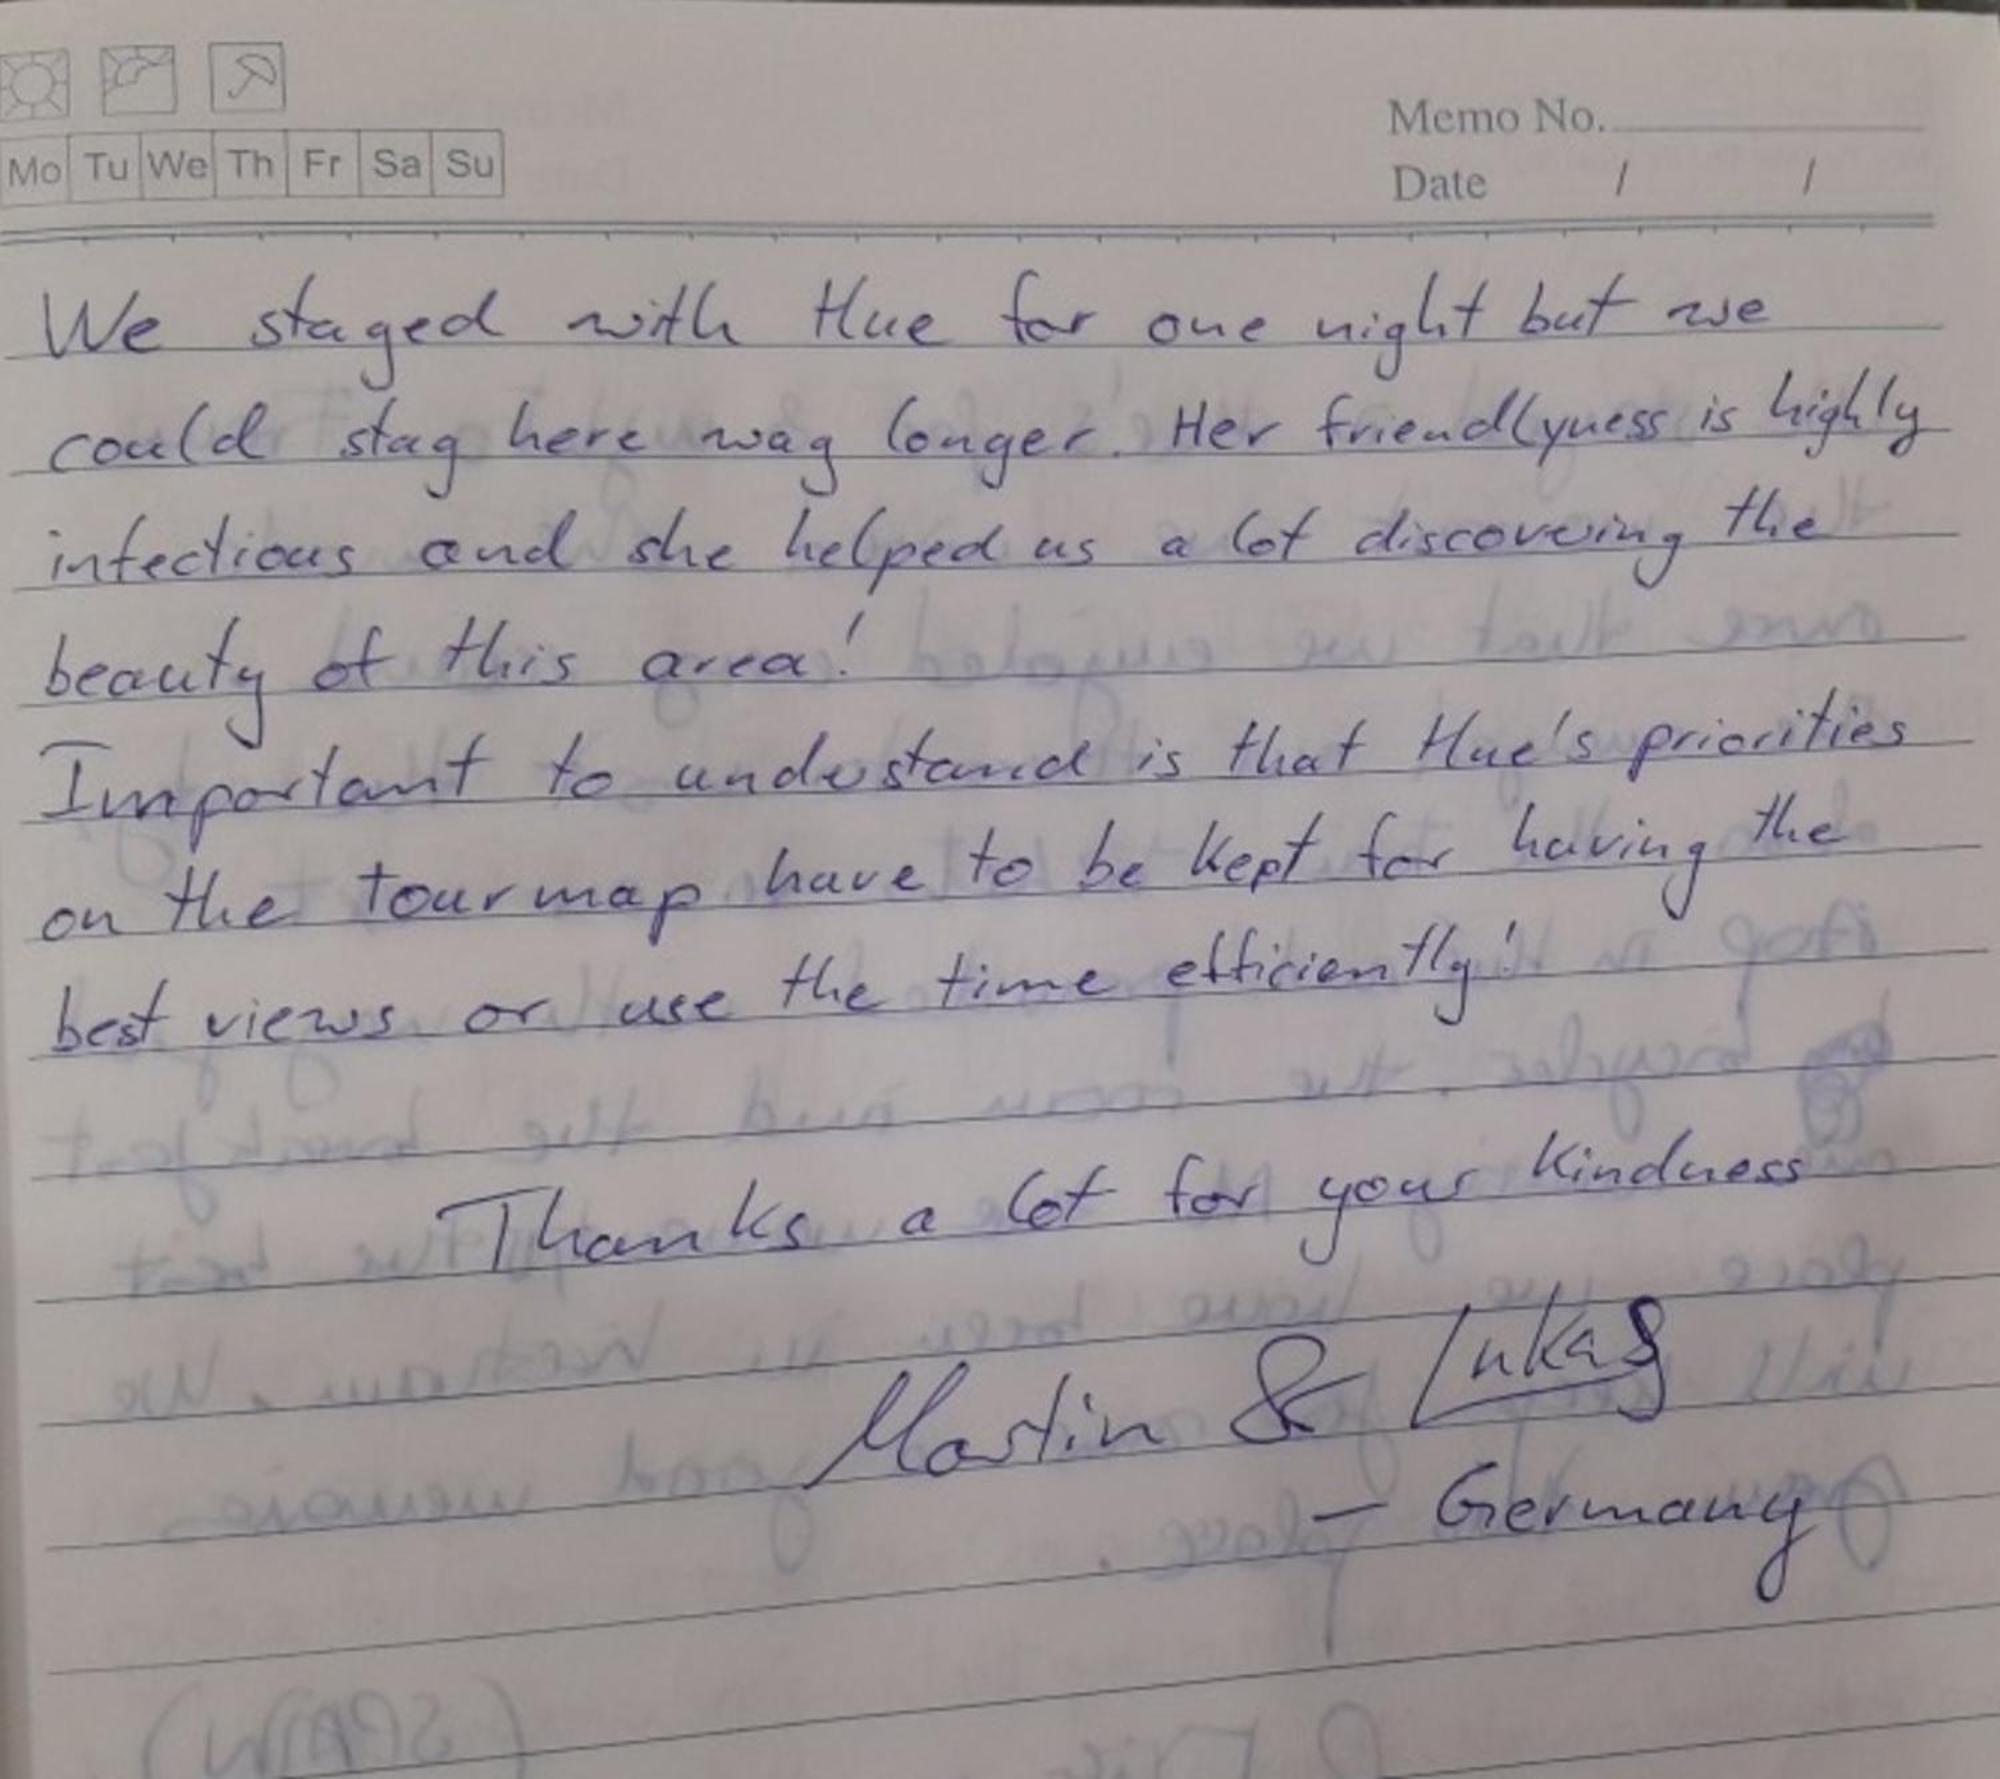 Memo No.
Mo Tu We Th Fr Sa Su
Date / /
We stayed with Hue for one night but we
could stay here way longer. Her friendlyness is highly
infectious and she helped us a lot discovering the
beauty of this area!
Important to understand is that Hue's priorities
on the tourmap have to be kept for having the
best views or use the time efficiently!
Thanks a lot for your kindness
Martin & Lukas
- Germany
(SPAIN)